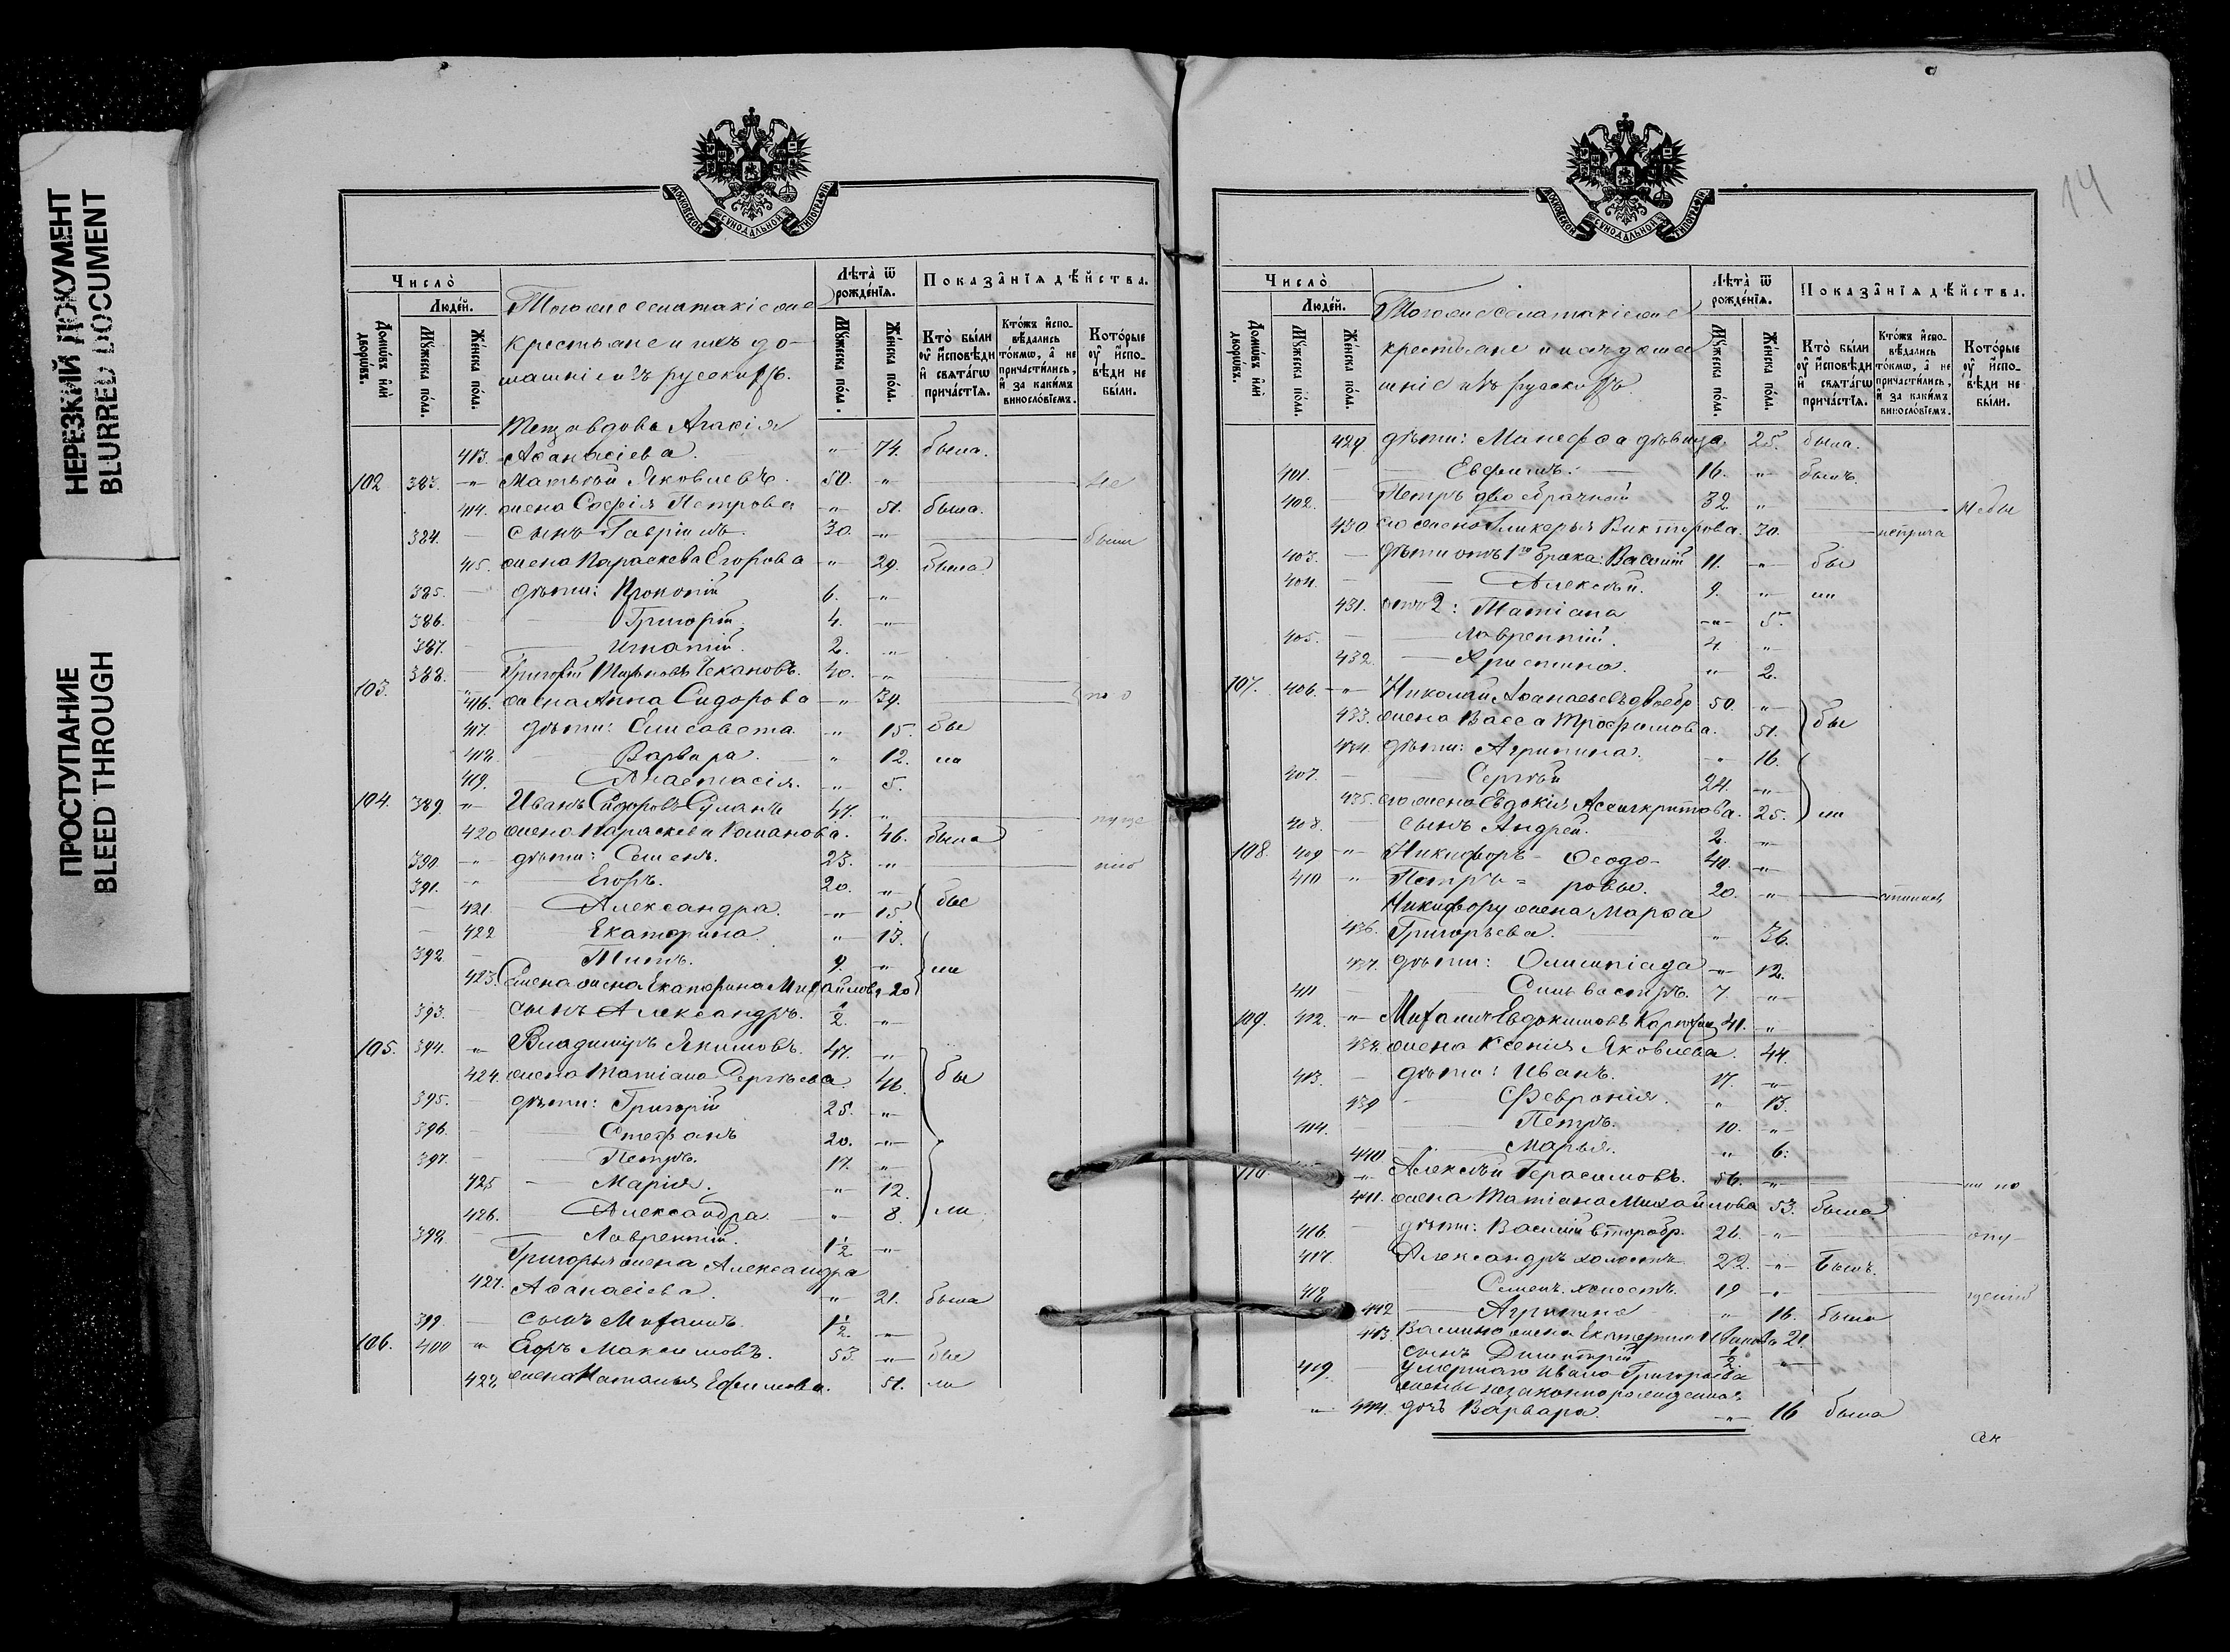 НЕРЕЗКИЙ ДОКУМЕНТ
BLURRED DOCUMENT
ПРОСТУПАНИЕ
BLEED THROUGH
МОСКОВСКОЙ СѴНОДАЛЬНОЙ ТИПОГРАФІИ
Число̀
Люде́й.
Домѡ́въ и҆лѝ дворѡ́въ.
Мꙋ́жеска по́ла.
Же́нска по́ла.
Тогоже села такіеже
крестьяне и ихъ до-
машніе изъ русскихъ.
Лѣта̀ ѿ рожде́нїѧ.
Мꙋ́жеска по́ла.
Же́нска по́ла.
Показа̑нїѧ дѣ́йства.
Кто̀ бы́ли ᲂу҆ и҆́сповѣди и҆ свѧта́гѡ прича́стїѧ.
Кто́жъ и҆сповѣ́дались то́кмѡ, а҆ не причасти́лись, и҆ за каки́мъ виносло́вїемъ.
Кото́рые ᲂу҆ и҆́сповѣди не бы́ли.
вдова
413. Аѳанасіева. " 74. была.
102 383. " Матѳей Яковлевъ. 50. " не
414. жена Софія Петрова " 51. была.
384. сынъ Гавріилъ 30. " были
415. жена Параскева Егорова " 29. была.
385. дѣти: Прокопій 6. "
386. Григорій 4. "
387. Игнатій. 2. "
103. 388. Григорій Чекановъ. 40. "
416. жена Анна Сидорова " 39. по о
417. дѣти: Елисавета " 15. бы
418. Варвара. " 12. ли
419. Анастасія. " 5.
104. 389. " Иванъ Сидоровъ 47. " пуще
420 жена Параскева Романова. 46. была
390. " дѣти: Семенъ. 23. " нію
391. " Егоръ. 20. " бы
421. Александра. " 15.
422 Екатерина. " 13.
392. Титъ. 9. " ли
423. Семена жена Екатерина Михайлова 20
393. сынъ Александръ. ½. "
105. 394. " Владиміръ Якимовъ. 47. "
424. жена Татіана Сергѣева. 46. бы
395. дѣти: Григорій 25. "
396. Стефанъ 20. "
397. Петръ. 17. "
425 Марія. " 12.
426. Александра. " 8. ли
398. Лаврентій. 1½ "
Григорья жена Александра
427. Аѳанасіева. " 21. была
399. сынъ Михаилъ. 1½. "
106. 400 " Егоръ Максимовъ. 53. " бы
428 жена Наталья Ефимова. 51. ли
14
МОСКОВСКОЙ СѴНОДАЛЬНОЙ ТИПОГРАФІИ
Число̀
Люде́й.
Домѡ́въ и҆лѝ дворѡ́въ.
Мꙋ́жеска по́ла.
Же́нска по́ла.
Тогоже села такіеже
крестьяне и ихъ дома
шніе изъ русскихъ.
Лѣта̀ ѿ рожде́нїѧ.
Мꙋ́жеска по́ла.
Же́нска по́ла.
Показа̑нїѧ дѣ́йства.
Кто̀ бы́ли ᲂу҆ и҆́сповѣди и҆ свѧта́гѡ прича́стїѧ.
Кто́жъ и҆сповѣ́дались то́кмѡ, а҆ не причасти́лись, и҆ за каки́мъ виносло́вїемъ.
Кото́рые ᲂу҆ и҆́сповѣди не бы́ли.
429. дѣти: Манефа дѣвица. 25. была.
401. Евфимъ. 16. " былъ.
402. Петръ двоебрачный 32. " не бы
430 его жена Гликерья Викторова. 30. неприча
403. дѣти отъ 1го брака: Василій 11. " бы
404. Алексѣй. 9. " ли
431. отъ 2: Татіана " 5.
405. Лаврентій. 4. "
432. Христина. " 2.
107. 406. " Николай Аѳанасьевъ двоебр 50. "
433. жена Васса Трофимова. 51. бы
434. дѣти: Агрипина. " 16.
407. Сергѣй 24. "
435. его жена Евдокія Ассигкритова. 25. ли
408. сынъ Андрей. 2. "
108. 409 " Никифоръ = Ѳеодо- 40. "
410 " Петръ = ровы. 20. "
Никифору жена Марѳа
436. Григорьева. " 36.
437. дѣти: Олимпіада " 12.
411 Сильвестръ. 7. "
109. 412. " Михаилъ Евдокимовъ 41. "
438. жена Ксенія Яковлева. 44.
413. дѣти: Иванъ. 17. "
439 Февронія. " 13.
414. Петръ. 10. "
440 Марья. " 6.
110 " Алексѣй Герасимовъ. 56. " ни по
441. жена Татіана Михайлова 53. была
416. дѣти: Василій второбр. 26. " опу-
417. Александръ холостъ 22. " былъ.
418. Семенъ холостъ. 19 " щенію
442 Агрипина " 16. была
443 Василія жена Екатерина Иванова 21.
419. сынъ Димитрій ½. "
умершаго Ивана Григорьева
жены незаконнорожденная
" 444. дочь Варвара. " 16 была